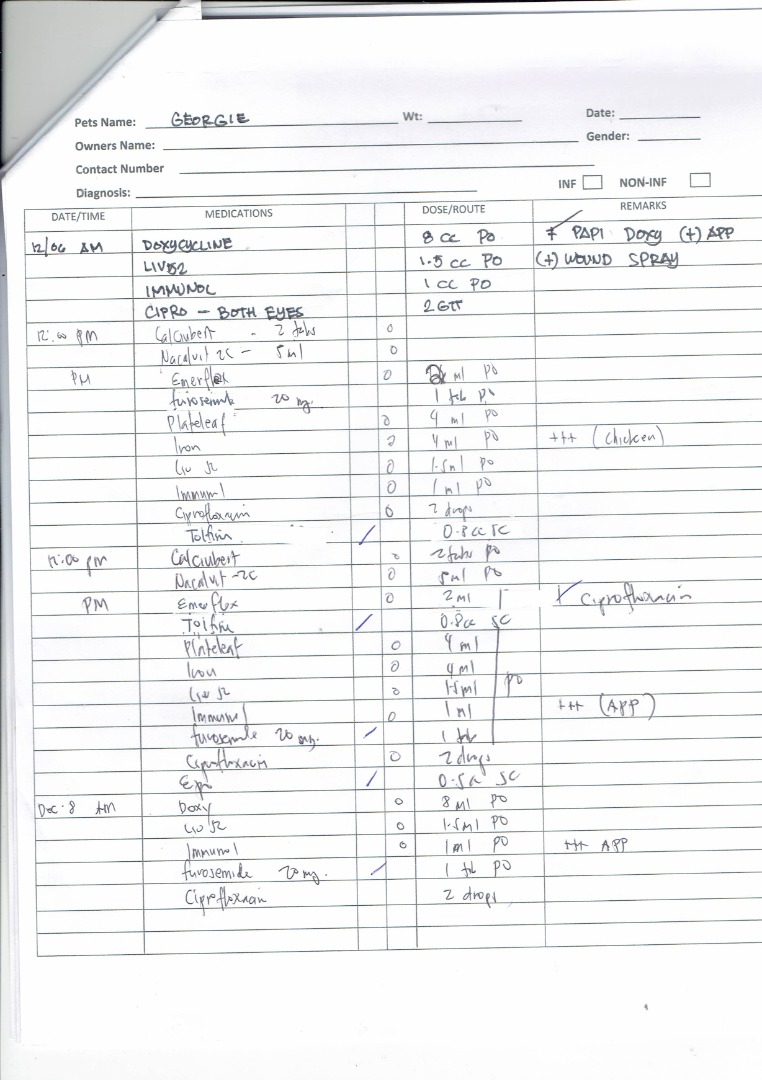 Pets Name: GEORGIE Wt: Date:
Owners Name: Gender:
Contact Number
Diagnosis: INF NON-INF
DATE/TIME MEDICATIONS DOSE/ROUTE REMARKS
12/06 AM DOXYCYCLINE 8 cc PO PAPI DOXY (+) APP
LIV52 1.5 cc PO (+) WOUND SPRAY
IMMUNOL 1 cc PO
CIPRO – BOTH EYES 2 GTT
12:00 PM Calciubert - 2 tabs
Nacalvit 2C – 5ml
PM Emerflex ml PO
furosemide 20 mg. 1 tab PO
Plateleaf 4 ml PO
Iron 4 ml PO +++ (chicken)
Liv 52 1.5ml PO
Immunol 1 ml PO
Ciprofloxacin 2 drops
Tolfine / 0.8 cc SC
12:00 pm Calciubert 2 tabs PO
Nacalvit -2C 5ml PO
PM Emerflex 2 ml Ciprofloxacin
Tolfine / 0.8cc SC
Plateleaf 4 ml
Iron 4 ml
Liv 52 1.5ml PO
Immunol 1 ml +++ (APP)
furosemide 20 mg. / 1 tab
Ciprofloxacin 2 drops
Epo / 0.5cc SC
Dec. 8 AM Doxy 8 ml PO
Liv 52 1.5ml PO
Immunol 1ml PO +++ APP
furosemide 20 mg. / 1 tab PO
Ciprofloxacin 2 drops